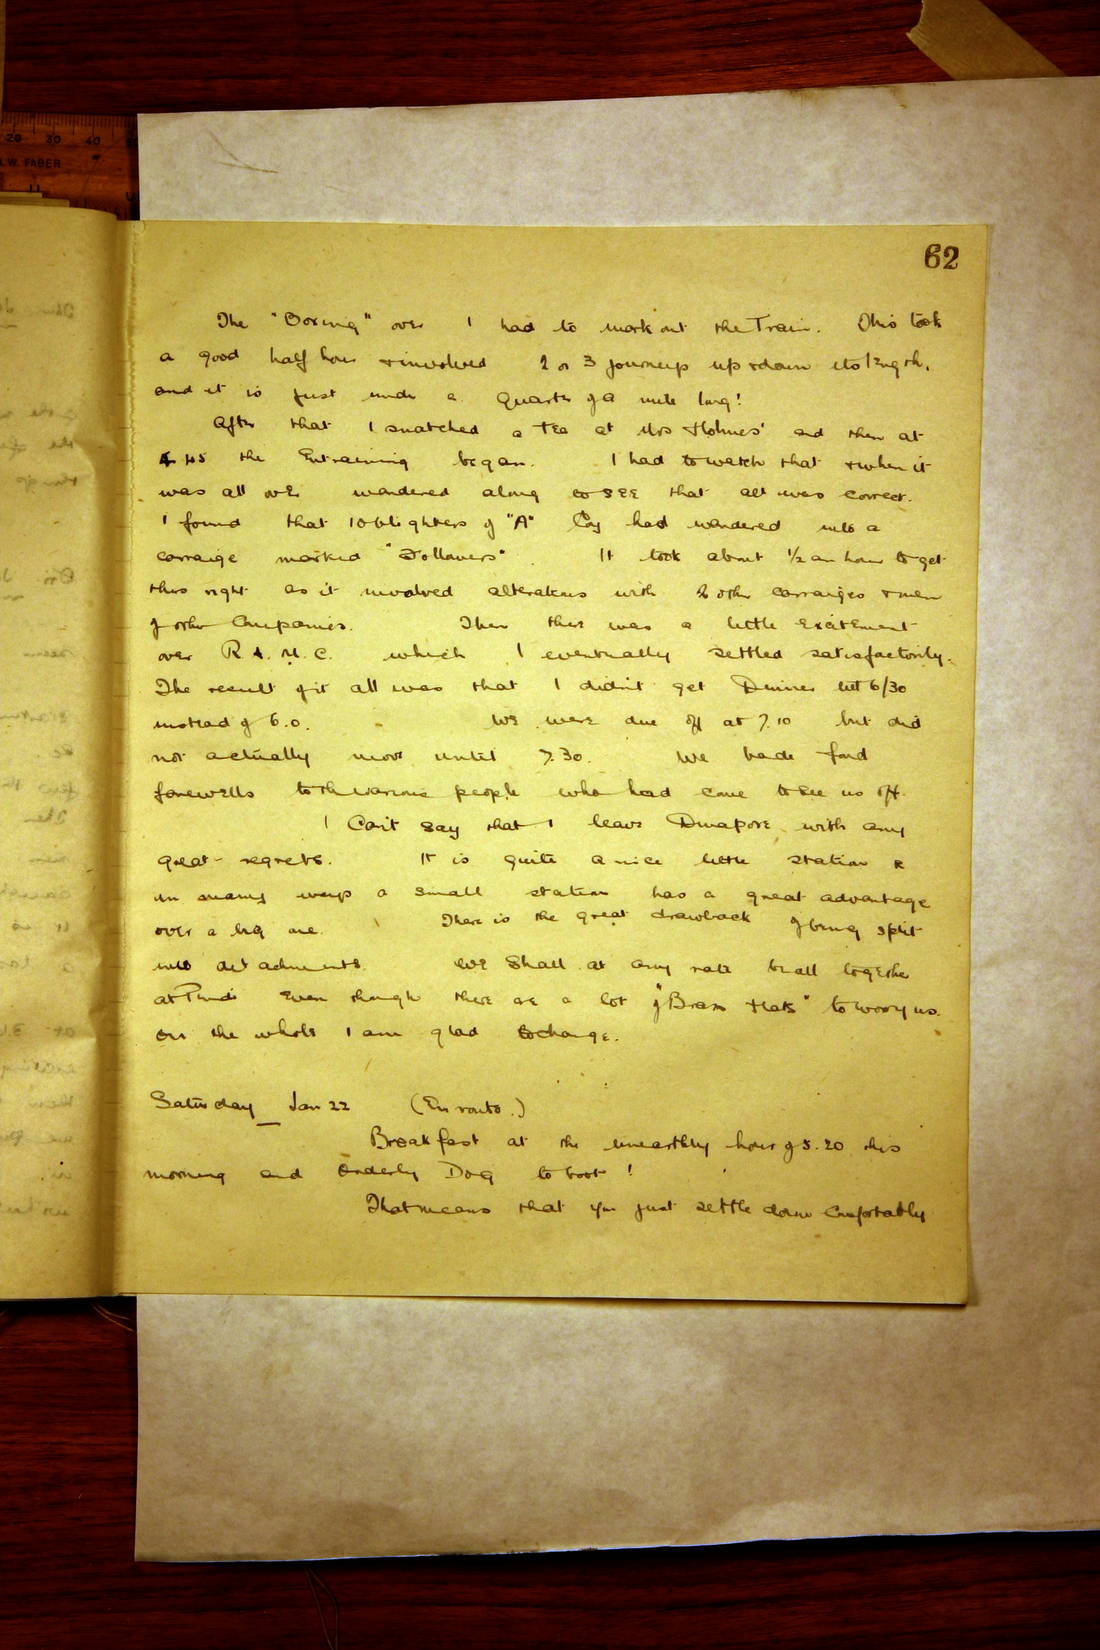 62
The "Boxing" over I had to mark out the Train. This took
a good half hour & involved 2 or 3 journeys up & down its length,
and it is just under a quarter of a mile long!
After that I snatched a tea at Mrs Holmes' and then at
4.45 the Entraining began. I had to watch that & when it
was all over wandered along to see that all was correct.
I found that 10 blighters of "A" Coy had wandered into a
carraige marked "Followers". It took about ½ an hour to get
this right as it involved alterations with 2 other carraiges & men
of other Companies. Then there was a little excitement
over R.A.M.C. which I eventually settled satisfactorily.
The result of it all was that I didn't get Dinner till 6/30
instead of 6.0. We were due off at 7.10 but did
not actually move until 7.30. We bade fond
farewells to the various people who had come to see us off.
I Can't say that I leave Dinapore with any
great regrets. It is quite a nice little station &
in many ways a small station has a great advantage
over a big one. There is the great drawback of being split
into detachments. We Shall at any rate be all together
at Pindi even though there are a lot of "Brass Hats" to worry us.
On the whole I am glad to change.
Saturday Jan 22 (En route.)
Breakfast at the unearthly hour of 5.20 this
morning and Orderly Dog to boot!
That means that you just settle down comfortably
20 30 40
W. FABER